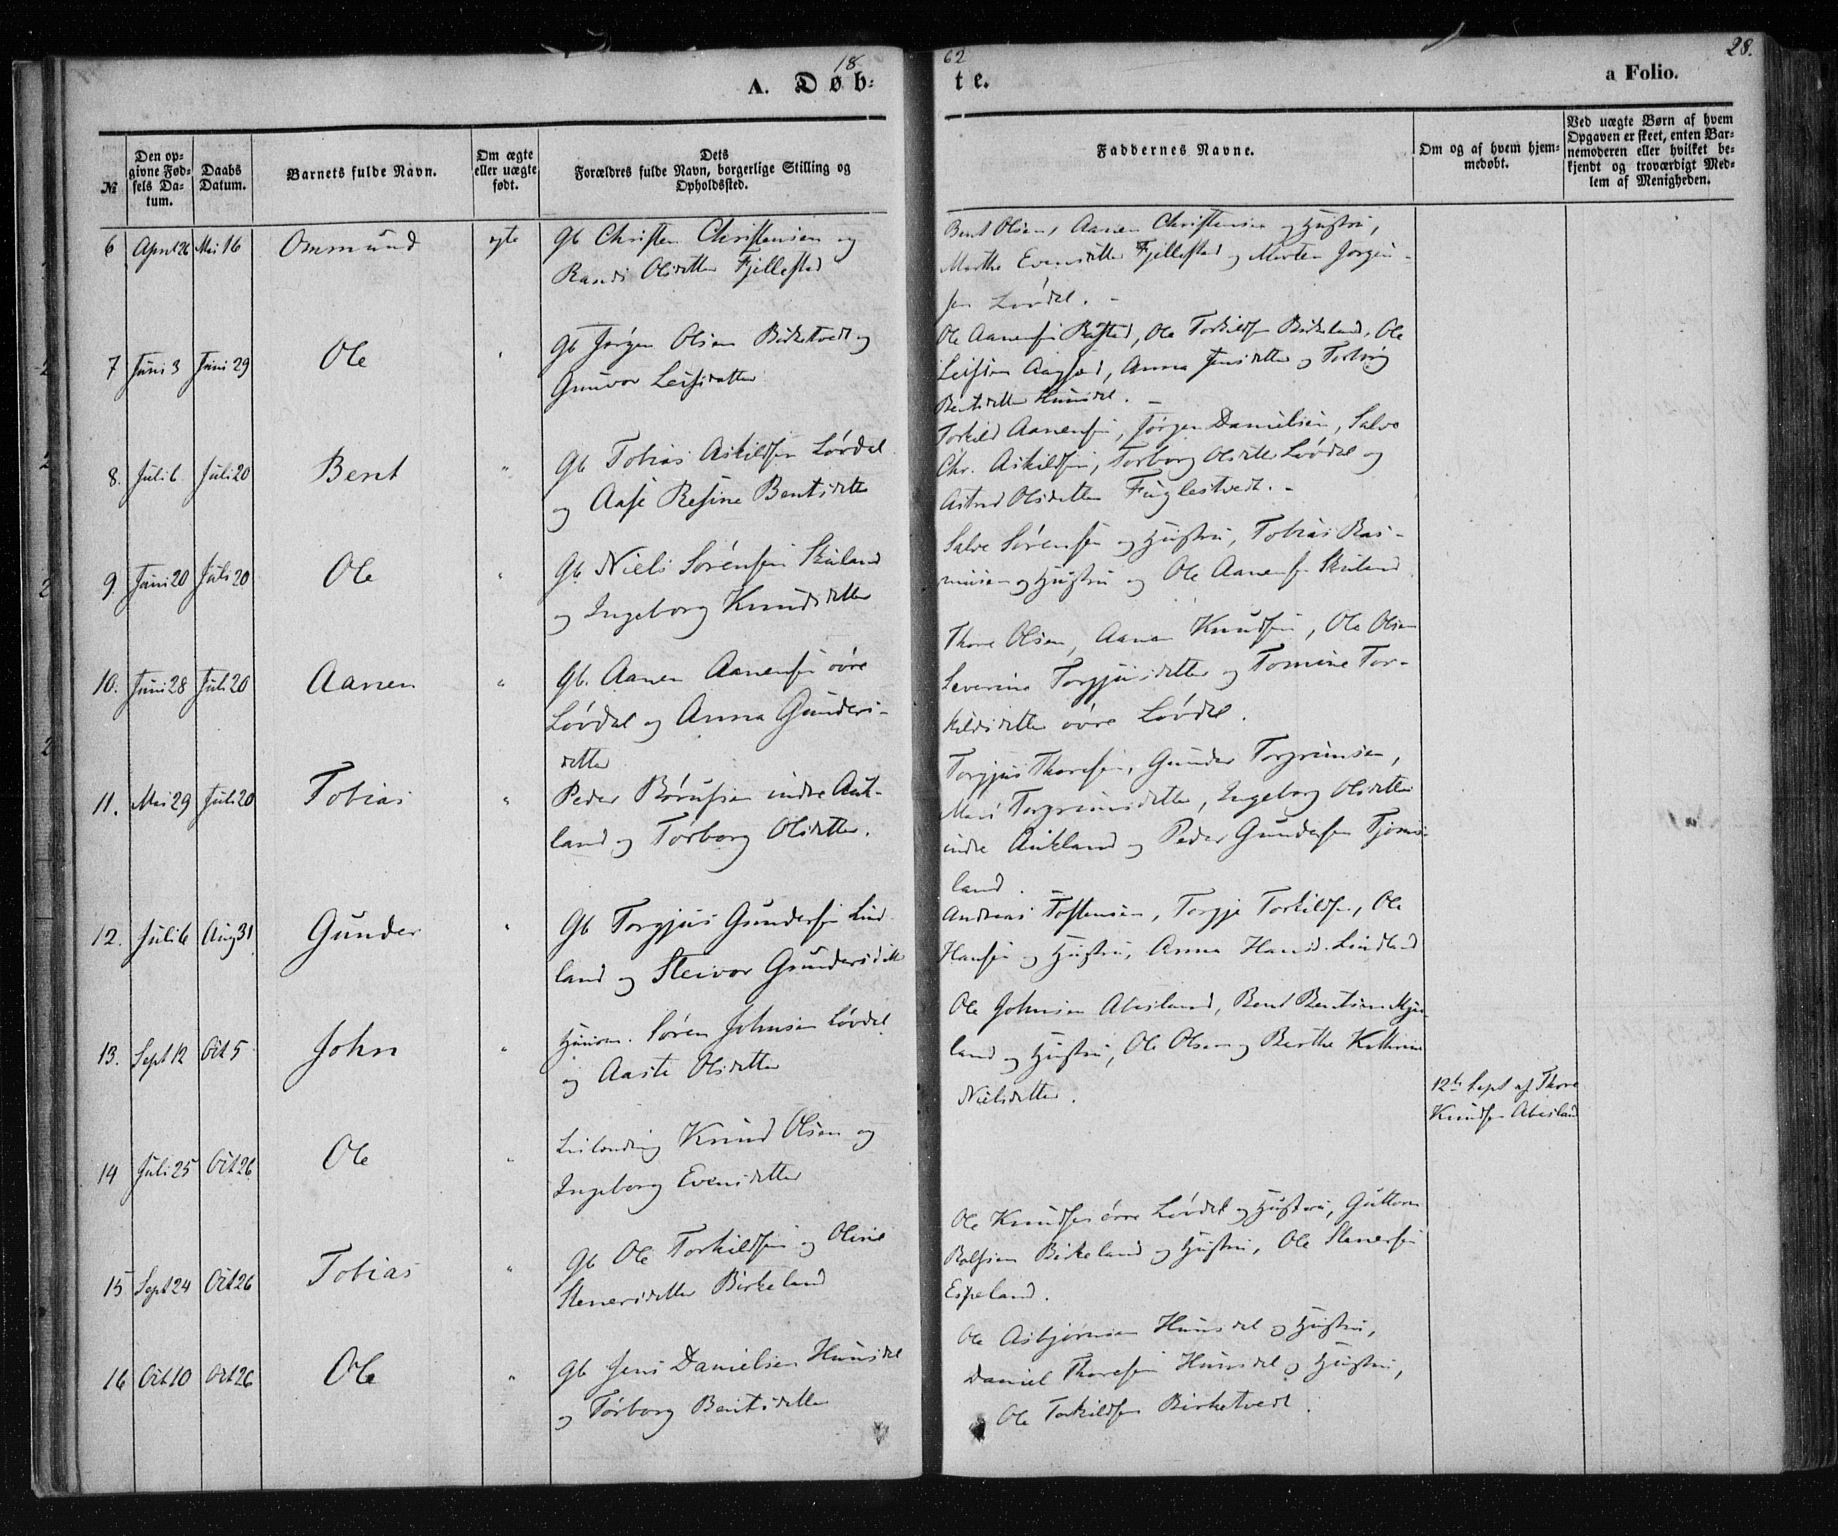 18
62
28.
A. Døb-
te.
a Folio.
№
Den op-
givne Fød-
sels Da-
tum.
Daabs
Datum.
Barnets fulde Navn.
Om ægte
eller uægte
født.
Dets
Forældres fulde Navn, borgerlige Stilling og
Opholdssted.
Faddernes Navne.
Om og af hvem hjem-
medøbt.
Ved uægte Børn af hvem
Opgaven er skeet, enten Bar-
nemoderen eller hvilket be-
kjendt og troværdigt Med-
lem af Menigheden.
6 April 26 Mai 16 Ommund ægte Gb Christen Christensen og
Randi Olsdatter Fjellestad
Bent Olsen, Aanen Christensen og Hustru,
Marthe Evensdatter Fjellestad og Morten Jørgen-
sen Løvdal.
7 Juni 3 Juni 29 Ole " Gb Jørgen Olsen Birketvedt og
Gunvor Leifsdatter
Ole Aanensen, Ole Torkildsen Birkeland, Ole
Leifsen, Anna Jensdatter og Torborg
Bentsdatter Hunsdal.
8. Juli 6 Juli 20 Bent " Gb Tobias Askildsen Løvdal
og Aase Resine Bentsdatter
Torkild Aanensen, Jørgen Danielsen, Salve
Chr. Askildsen, Torborg Olsdatter Løvdal og
Astrid Olsdatter Fuglestvedt.
9. Juni 20 Juli 20 Ole " Gb. Niels Sørensen Skuland
og Ingeborg Knudsdatter
Salve Sørensen og Hustru, Tobias Ras-
musen og Hustru og Ole Aanensen Skuland
10. Juni 28 Juli 20 Aanen " Gb. Aanen Aanensen øvre
Løvdal og Anna Gunders-
datter
Thore Olsen, Aanen Knudsen, Ole Olsen
Severine Torgjusdatter og Tomine Tor-
kildsdatter øvre Løvdal.
11. Mai 29 Juli 20 Tobias " Peder Børufsen indre Auk-
land og Torborg Olsdatter.
Torgjus Thoresen, Gunder Torgrimsen,
Mari Torgrimsdatter, Ingeborg Olsdatter
indre Aukland og Peder Gundersen Tjoms-
land.
12. Juli 6 Aug 31 Gunder " Gb Torgjus Gundersen Lind-
land og Steivor Gundersdatt
Andreas Tostensen, Torgje Torkildsen, Ole
Hansen og Hustru, Anna Hansd. Lindland
13. Sept 12 Oct 5 John " Huusm. Søren Johnsen Løvdal
og Aaste Olsdatter
Ole Johnsen Abesland, Bent Bentsen Mju-
land og Hustru, Ole Olsen og Berthe Kathrine
Nielsdatter.
12te Sept af Thore
Knudsen Abesland
14 Juli 25 Oct 26 Ole " Leilending Knud Olsen og
Ingeborg Evensdatter
15 Sept 24 Oct 26 Tobias " Gb Ole Torkildsen og Oline
Stenersdatter Birkeland
Ole Knudsen øvre Løvdal og Hustru, Guttorm
Rolfsen Birkeland og Hustru, Ole Stenersen
Espeland.
16 Oct 10 Oct 26 Ole " Gb Jens Danielsen Hunsdal
og Torborg Bentsdatter
Ole Asbjørnsen Hunsdal og Hustru,
Daniel Thoresen Hunsdal og Hustru,
Ole Torkildsen Birketvedt.